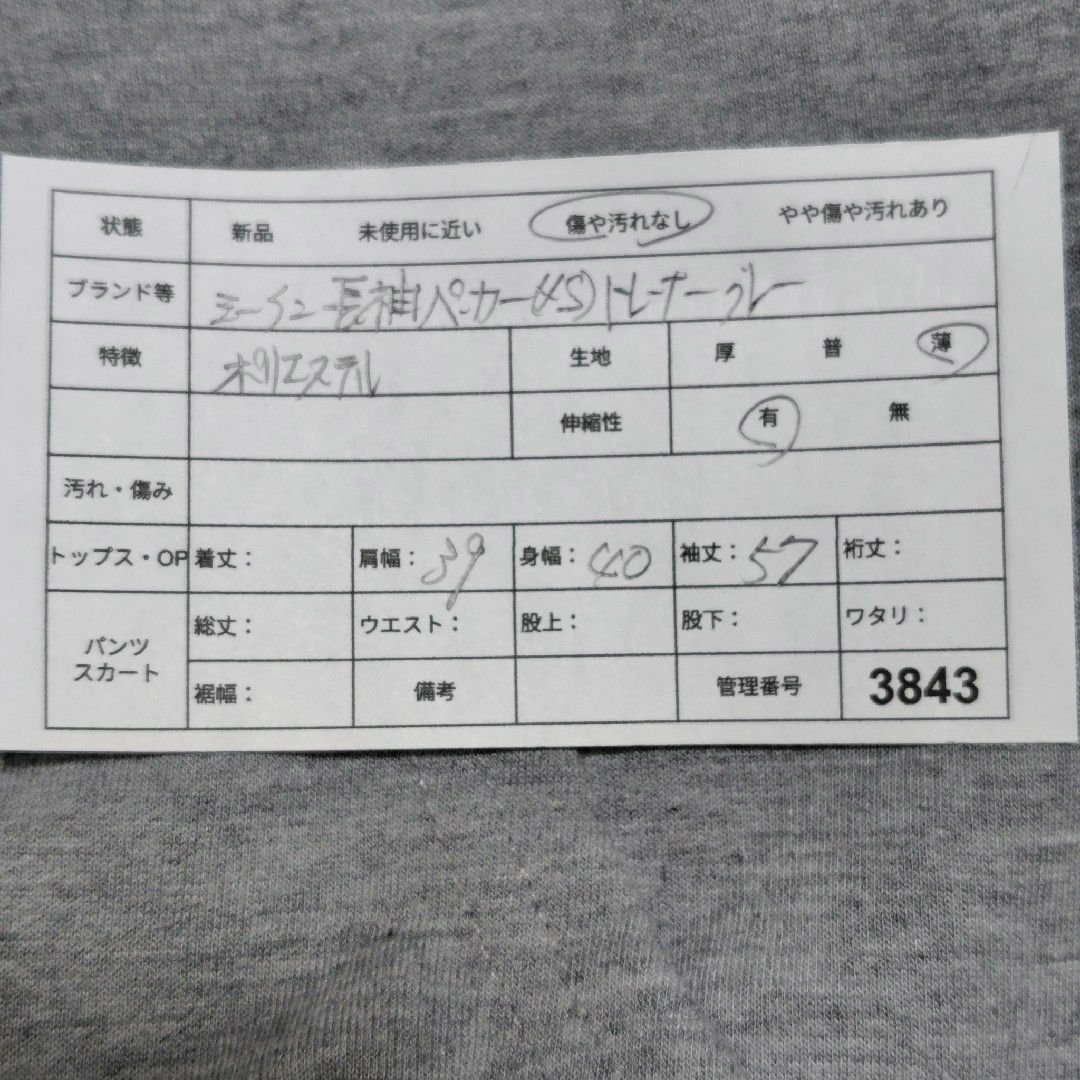 状態 新品 未使用に近い 傷や汚れなし やや傷や汚れあり
ブランド等 長袖パーカー(XS)トレーナーグレー
特徴 ポリエステル 生地 厚 普 薄
伸縮性 有 無
汚れ・傷み
トップス・OP 着丈： 肩幅：39 身幅：40 袖丈：57 裄丈：
パンツ スカート 総丈： ウエスト： 股上： 股下： ワタリ：
裾幅： 備考 管理番号 3843